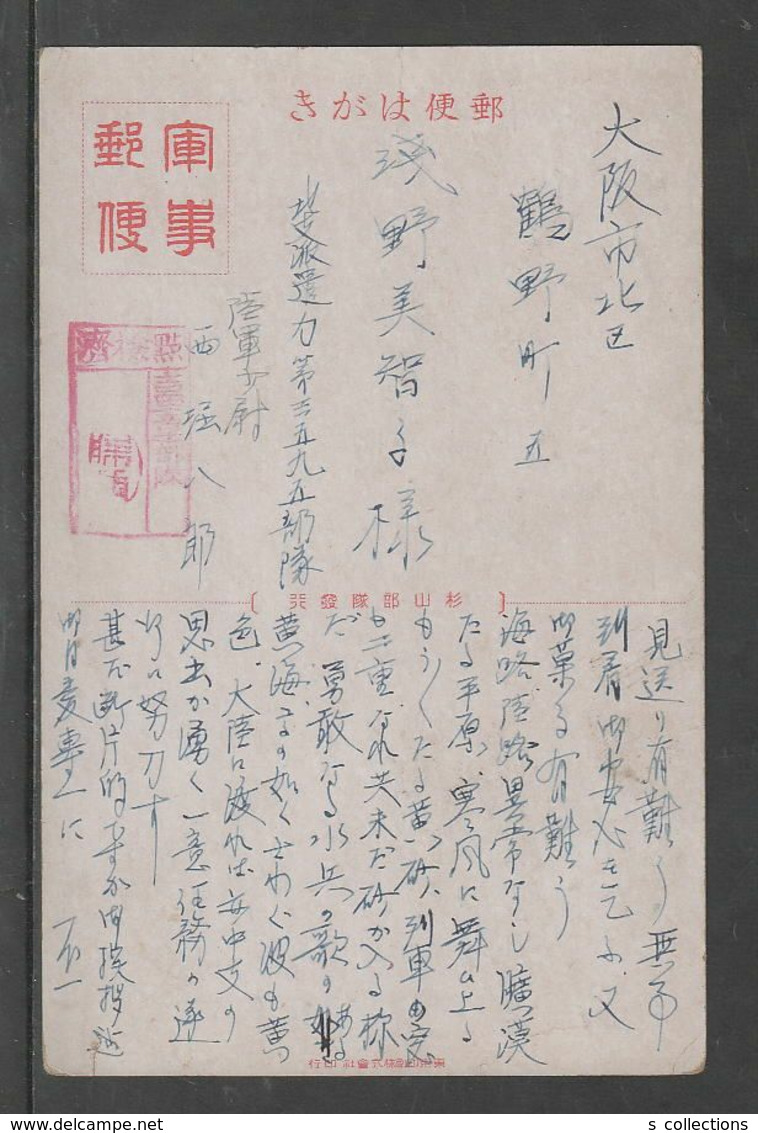 郵便はがき
軍事
郵便
大阪市北区
鶴野町五
浅野美智子様
派遣 第二五九五部隊
陸軍少尉
西堀八郎
點検濟
杉山部隊發行
見送り有難う 無事
到着御安心を乞ふ 又
御菓子有難う
海路陸路異常なし 曠漠
たる平原、寒風に舞ひ上る
もう〱たる黄砂、列車の窓
も二重なれ共未だ砂が入る
だ 勇敢なる水兵の歌の
黄海 の如くさわぐ波も黄
色、大陸に渡れば 中支の
思出が湧く 一意任務の遂
行に努力す
甚だ断片的ですが御挨拶迄
に
株式會社印行
s collections